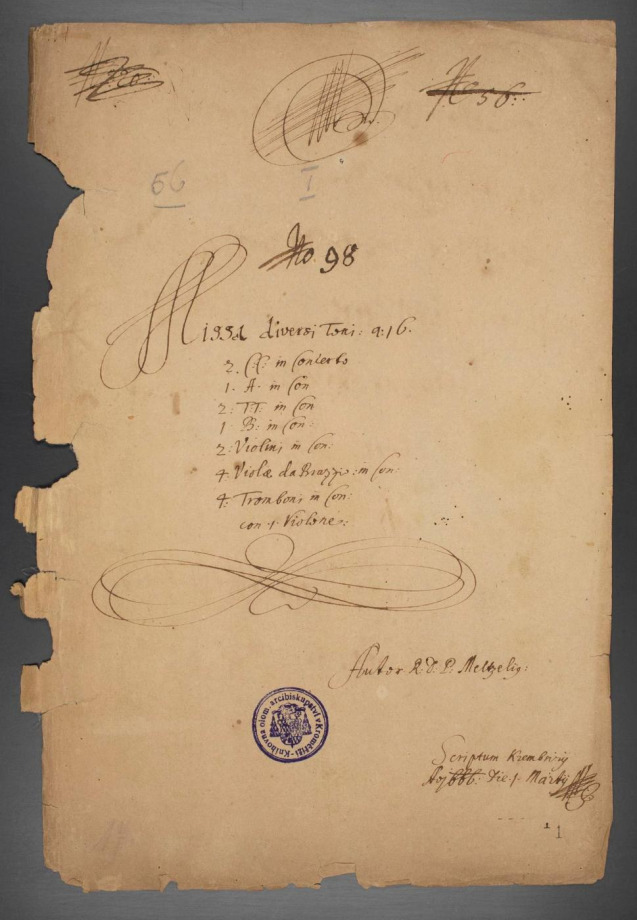 No 56.
56
I
No. 98
Missa diversi Toni: a: 16.
2. CC. in Concerto
1. A. in Con
2: TT: in Con
1 B: in Con:
2: Violini in Con:
4 Violæ da Brazzio: in Con:
4: Tromboni in Con:
con 1 Violone:
Autor R. D. P. Meltzelig:
Knihovna olom. arcibiskupství v Kroměříži
Scriptum Krembsirij
Die 1. Martij
1